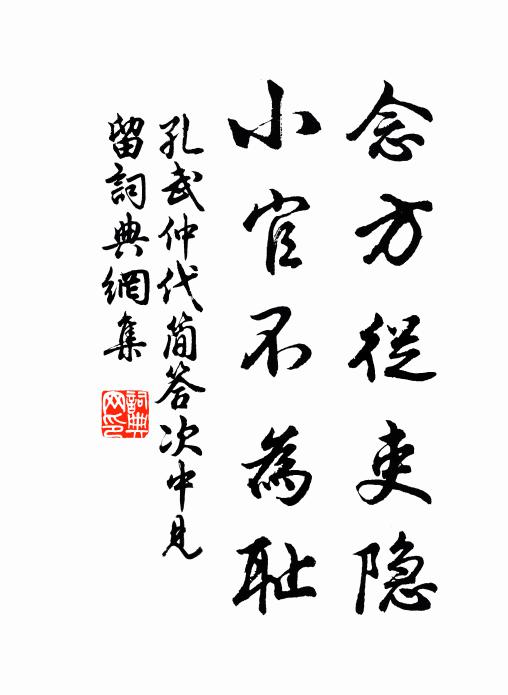 念方從吏隐
小官不為耻
孔武仲代簡答次中見
留詞典網集
詞典网印